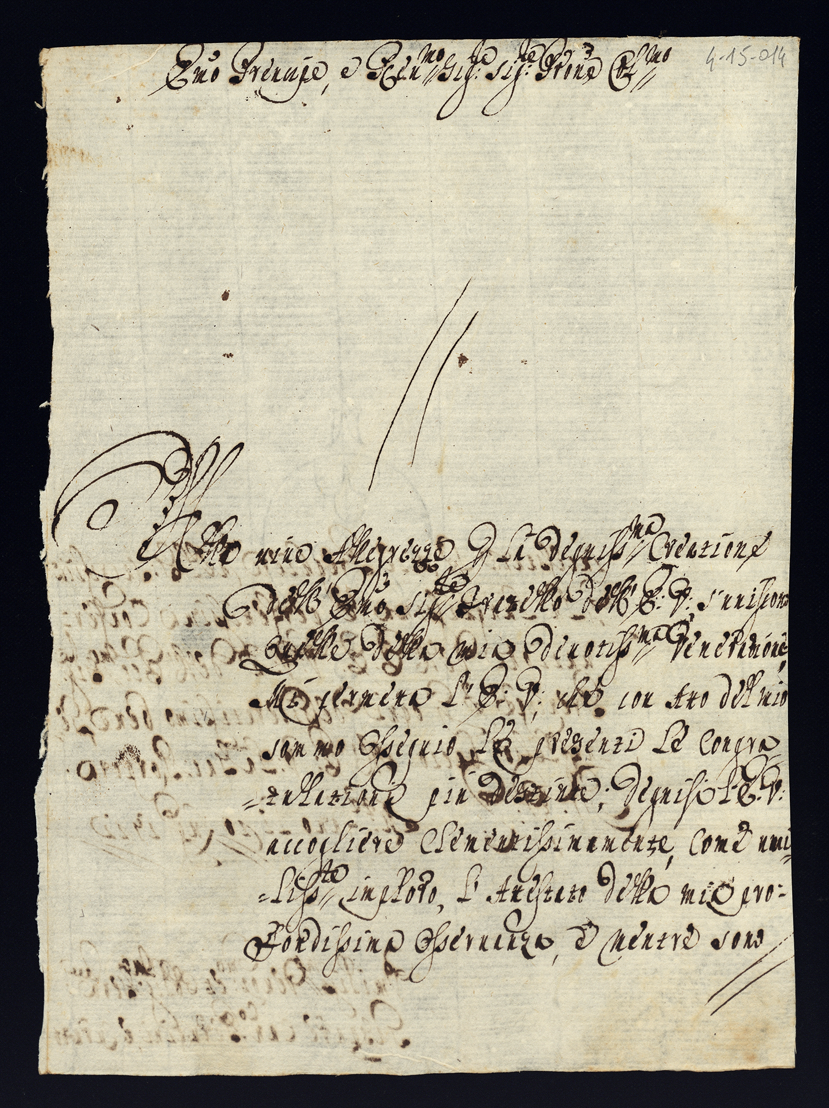 Emo Prencipe, e Ren:mo Sig:re Sig:re Prone Col:mo
4-15-014
Alle mie Allegrezze p la degniss:ma Creatione
dell' Emo Sig:re Fratello dell' E: V: s'uniscono
quelle della mia devotiss:ma Veneratione,
Mi permetta l' E: V: che con Atto del mio
sommo Ossequio Le presenti Le Congra-
-tulationi piu distinte; degnisi l'E: V:
accogliere Clementissimamente, come umi-
-liss:te imploro, l' Attestato della mia pro-
fondissima Osservanza, è mentre sono